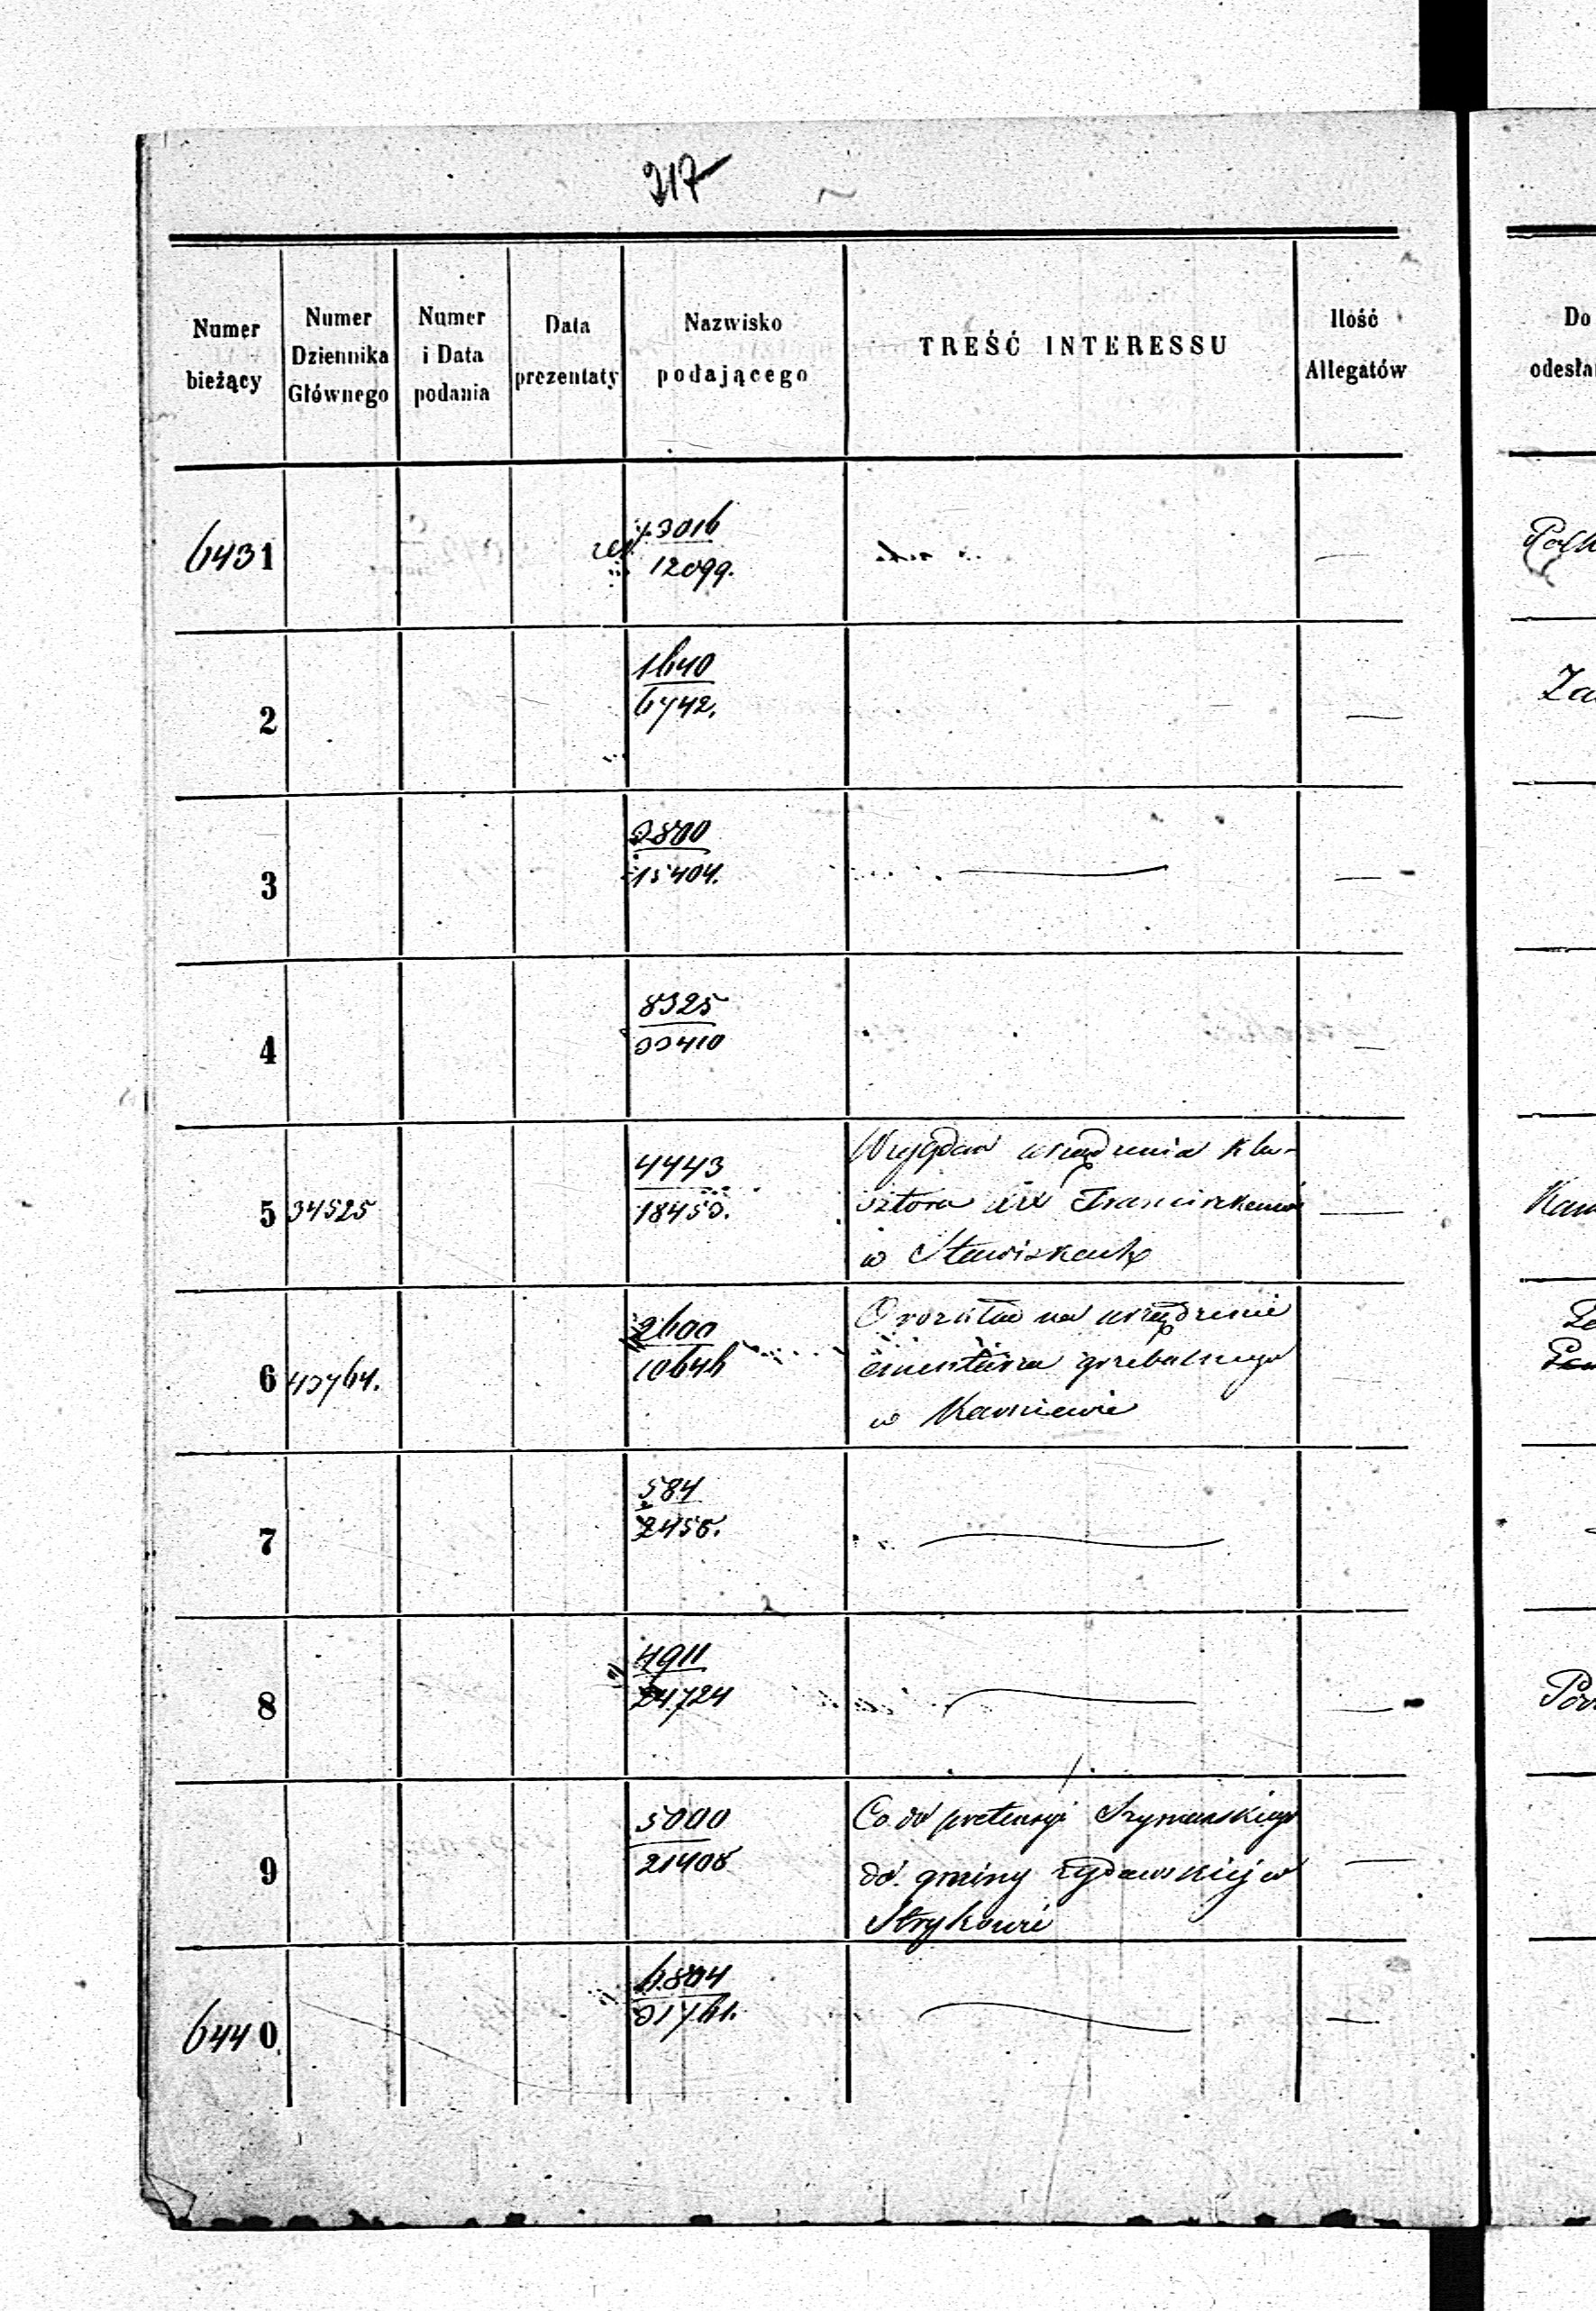 217
Numer bieżący
Numer Dziennika Głównego
Numer i Data podania
Data prezentaty
Nazwisko podającego
TREŚĆ INTERESSU
Ilość Allegatów
Do
odesła
6431
3016
12099.
2
1640
6742.
Za
3
3800
15404.
4
8325
33410
5
34525
4443
18453.
urządzenia kla-
sztoru xx Franciszkanów
w Stawiskach
Kam
6
43764.
2600
10646
na urządzenie
cmentarza grzebalnego
w
7
584
2458.
8
4911
24724
9
5000
21408
Co do pretensyi Szymanskiego
do gminy żydowskiej w
Strykowie
6440.
6804
31761.